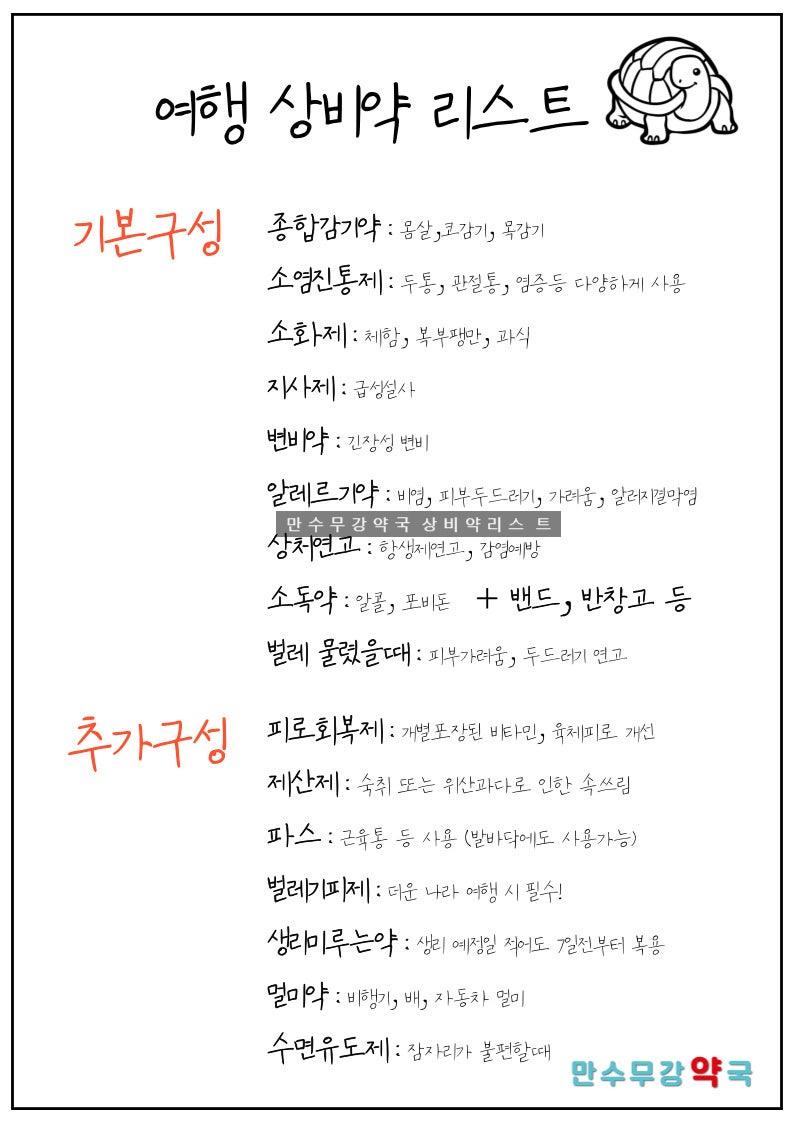 여행 상비약 리스트
기본구성
종합감기약 : 몸살, 코감기, 목감기
소염진통제 : 두통, 관절통, 염증등 다양하게 사용
소화제 : 체함, 복부팽만, 과식
지사제 : 급성설사
변비약 : 긴장성 변비
알레르기약 : 비염, 피부두드러기, 가려움, 알러지결막염
만수무강약국 상비약리스트
상처연고 : 항생제연고, 감염예방
소독약 : 알콜, 포비돈 + 밴드, 반창고 등
벌레 물렸을때 : 피부가려움, 두드러기 연고
추가구성
피로회복제 : 개별포장된 비타민, 육체피로 개선
제산제 : 숙취 또는 위산과다로 인한 속쓰림
파스 : 근육통 등 사용 (발바닥에도 사용가능)
벌레기피제 : 더운 나라 여행 시 필수!
생리미루는약 : 생리 예정일 적어도 7일전부터 복용
멀미약 : 비행기, 배, 자동차 멀미
수면유도제 : 잠자리가 불편할때
만수무강약국